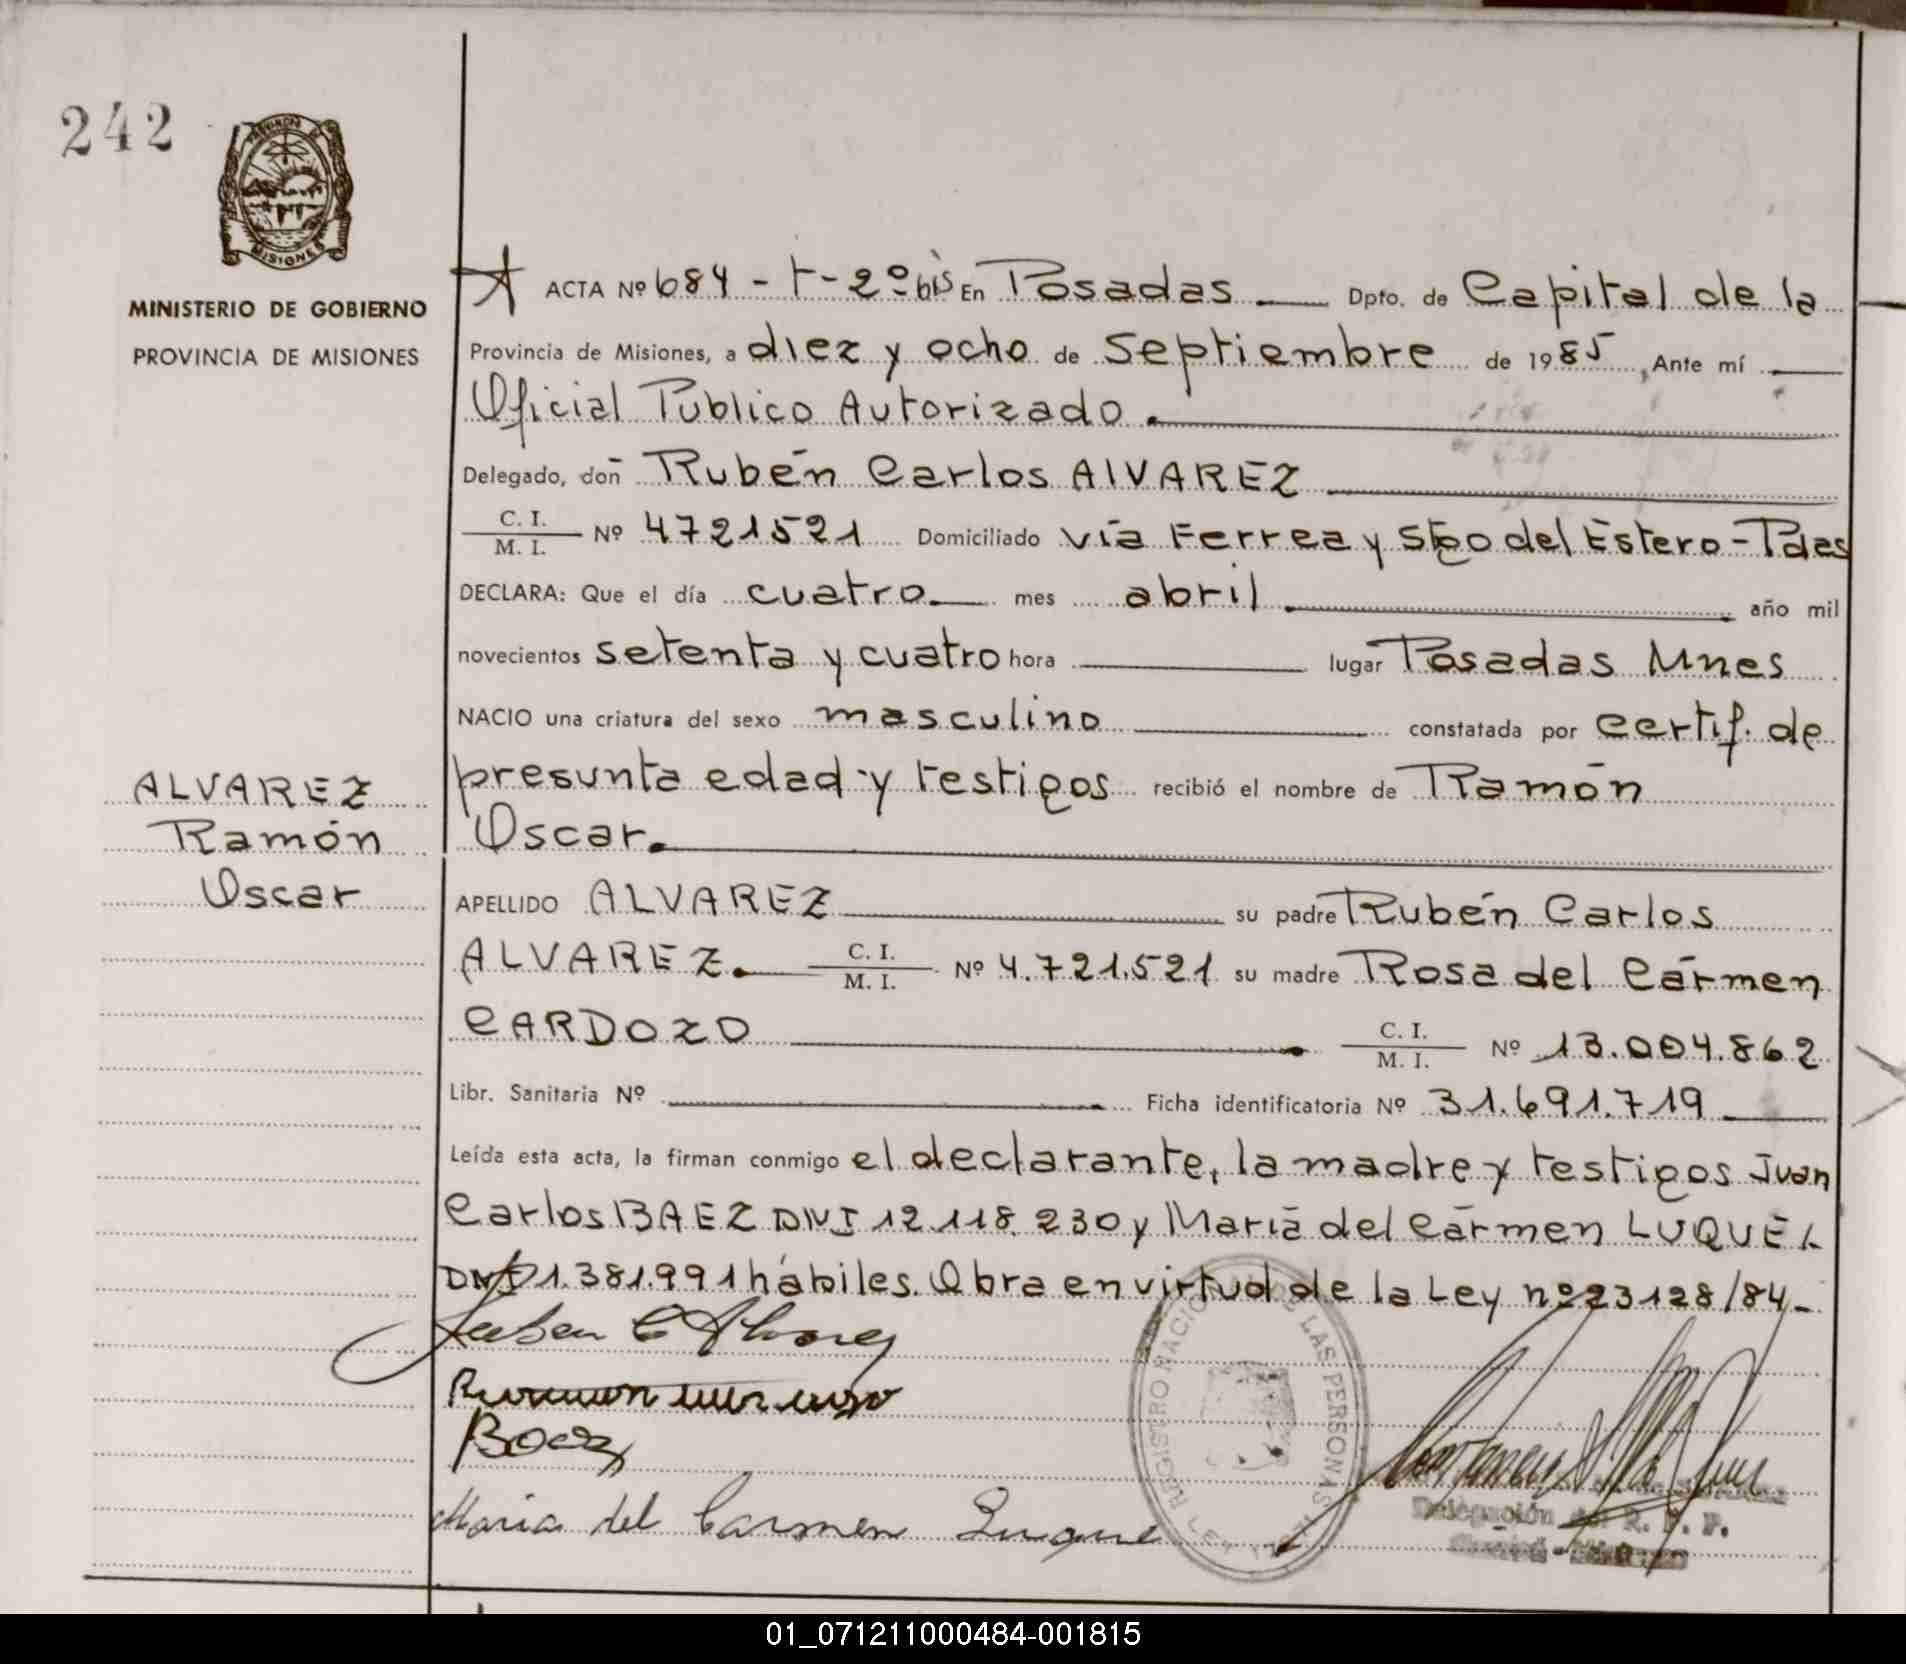 242
PROVINCIA DE
MISIONES
MINISTERIO DE GOBIERNO
PROVINCIA DE MISIONES
ACTA Nº 684 - T - 2º bis En Posadas Dpto. de Capital de la
Provincia de Misiones, a diez y ocho de septiembre de 1985, Ante mí
Oficial Público Autorizado.
Delegado, don Rubén Carlos ALVAREZ
C. I.
M. I. Nº 4721521 Domiciliado vía Ferrea y Stgo del Estero - Pdas
DECLARA: Que el día cuatro mes abril año mil
novecientos setenta y cuatro hora lugar Posadas Mnes
NACIO una criatura del sexo masculino constatada por certif. de
presunta edad y testigos recibió el nombre de Ramón
Oscar.
ALVAREZ
Ramón
Oscar
APELLIDO ALVAREZ su padre Rubén Carlos
ALVAREZ. C. I.
M. I. Nº 4.721.521 su madre Rosa del Cármen
CARDOZO C. I.
M. I. Nº 13.004.862
Libr. Sanitaria Nº Ficha identificatoria Nº 31.691.719
Leída esta acta, la firman conmigo el declarante, la madre y testigos Juan
Carlos BAEZ DNI 12.118.230 y María del Cármen LUQUE
1.381.991 hábiles. Obra en virtud de la Ley nº 23128/84-
Ruben C Alvarez
Baez
Maria del Carmen Luque
REGISTRO LAS PERSONAS
Delegación R. P. P.
01_071211000484-001815